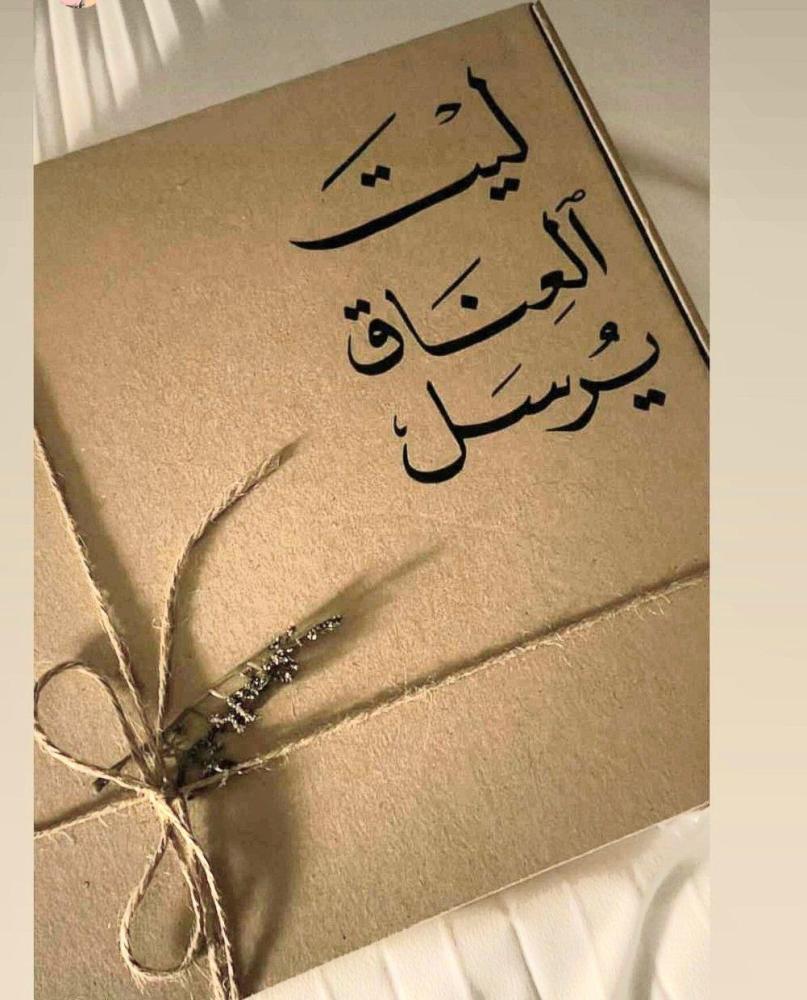 ليْت
ٱلعِناق
يُرسَل